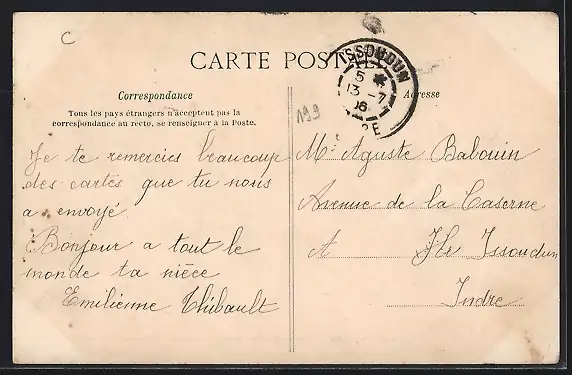 C
CARTE POSTALE
ISSOUDUN
5 *
13 -7
16
RE
Correspondance
Adresse
Tous les pays étrangers n'acceptent pas la
correspondance au recto, se renseigner à la Poste.
199
Je te remercies beaucoup
des cartes que tu nous
a envoyé
Bonjour a tout le
monde ta nièce
Emilienne Thibault
Mr Aguste Babouin
Avenue de la Caserne
A Issoudun
Indre